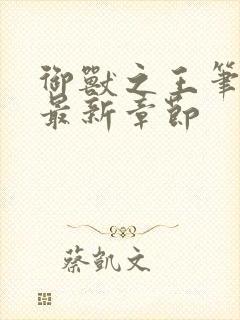 御獸之王筆
最新章節
蔡凱文